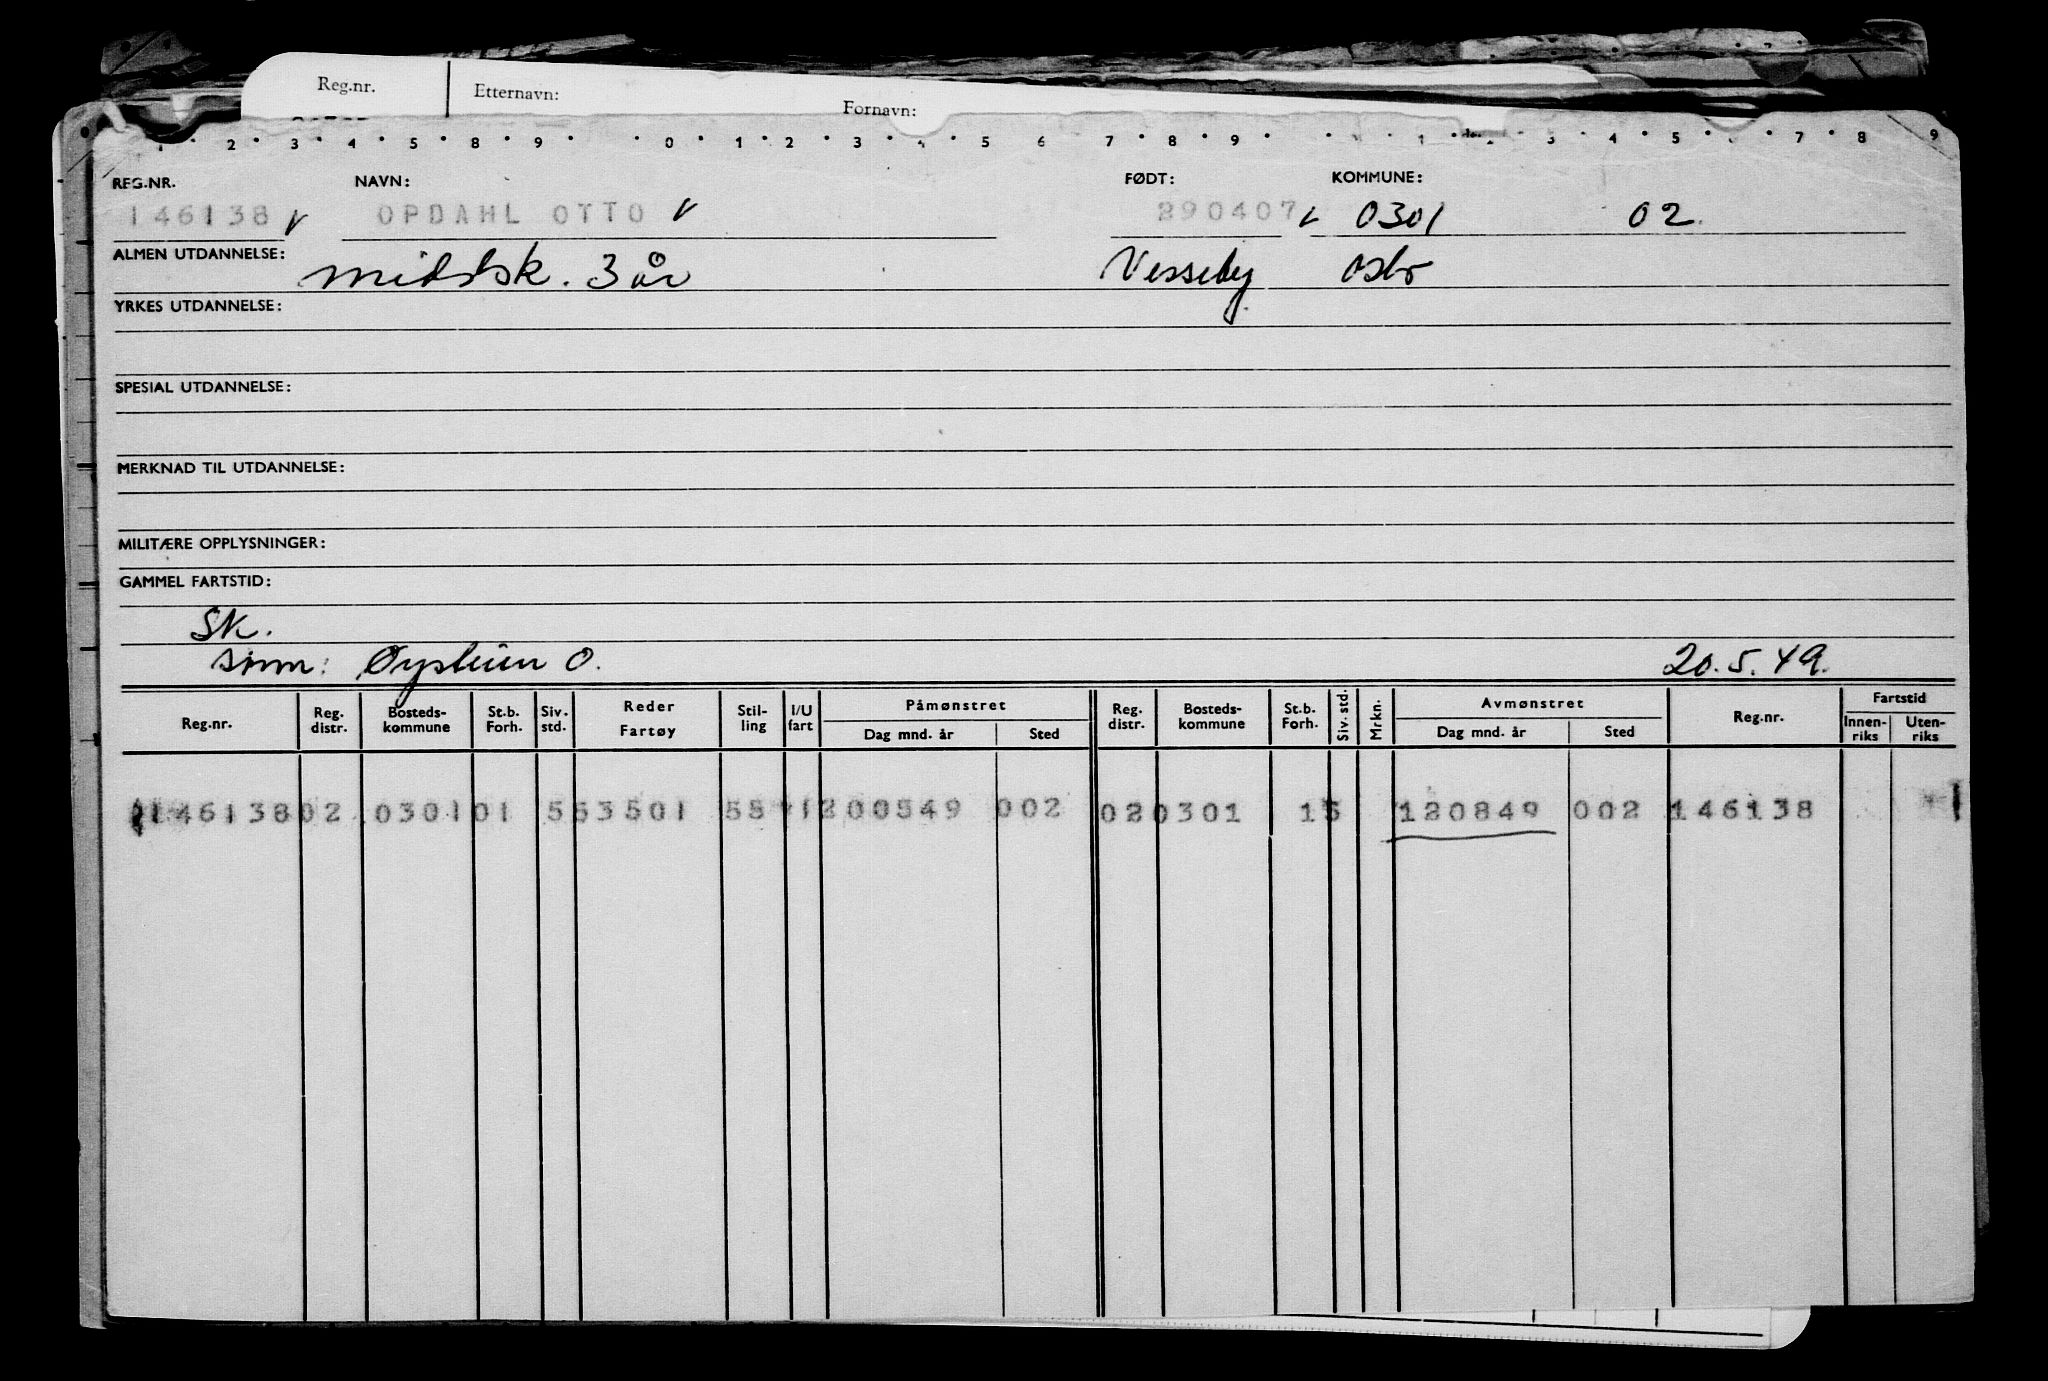 Reg.nr. Etternavn: Fornavn:
1 2 3 4 5 8 9 0 1 2 3 4 5 6 7 8 9 1 2 3 4 5 6 7 8 9
REG.NR. NAVN: FØDT: KOMMUNE:
146138 v OPDAHL OTTO v 290407 v 0301 02
ALMEN UTDANNELSE: middsk. 3 år Vesseby Oslo
YRKES UTDANNELSE:
SPESIAL UTDANNELSE:
MERKNAD TIL UTDANNELSE:
MILITÆRE OPPLYSNINGER:
GAMMEL FARTSTID:
SK.
sønn: Øystein O. 20.5.49.
Reg.nr. Reg. distr. Bosteds-kommune St.b. Forh. Siv. std. Reder Fartøy Stil-ling I/U fart Påmønstret Dag mnd. år Sted Reg. distr. Bosteds-kommune St.b. Forh. Siv. std. Mrkn. Avmønstret Dag mnd. år Sted Reg.nr. Fartstid Innen-riks Uten-riks
146138 02 0301 01 5 53501 55 1 200549 002 02 0301 15 120849 002 146138 1